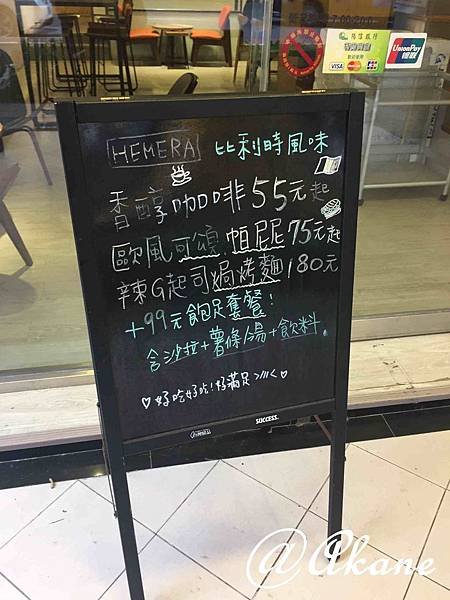 HEMERA 比利時風味
香醇咖啡55元起
歐風可頌.帕尼尼75元起
辣G起司焗烤麵180元
+99元飽足套餐!
含沙拉+薯條/湯+飲料。
♡好吃好吃!好滿足>///<♡
SUCCESS.
陽信銀行
VISA
JCB
UnionPay
银联
@Akane